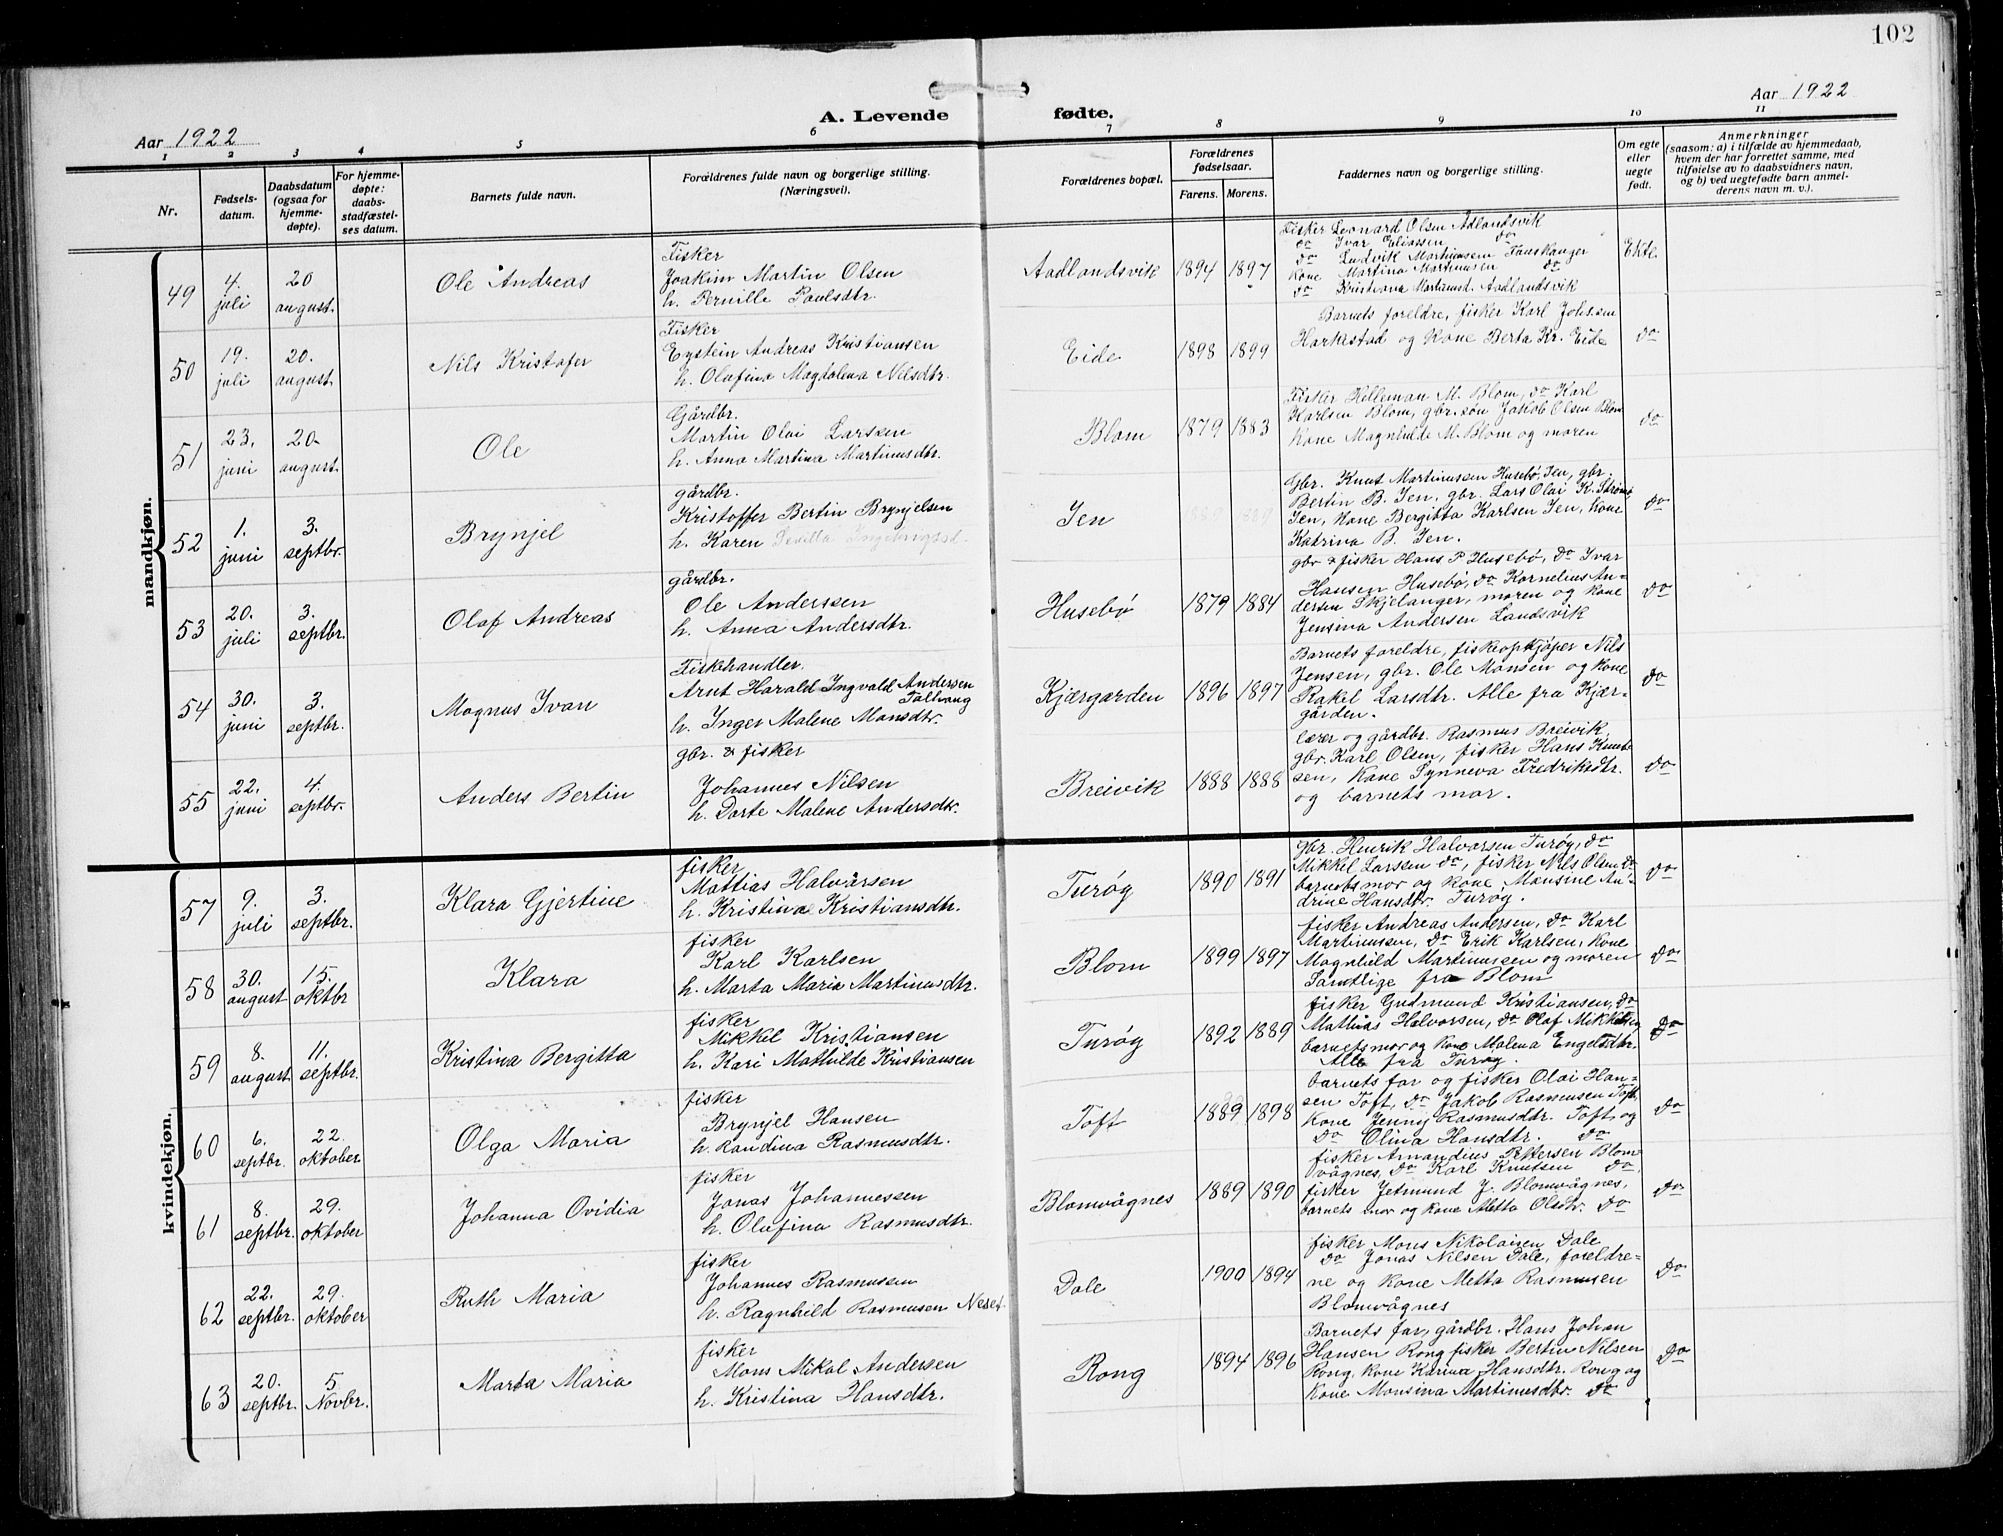 102
Aar 1922
A. Levende fødte.
Aar 1922
1 2 3 4 5 6 7 8 9 10 11
Nr.
Fødsels-
datum.
Daabsdatum
(ogsaa for
hjemme-
døpte).
For hjemme-
døpte:
daabs-
stadfæstel-
ses datum.
Barnets fulde navn.
Forældrenes fulde navn og borgerlige stilling.
(Næringsvei).
Forældrenes bopæl.
Forældrenes
fødselsaar.
Farens. Morens.
Faddernes navn og borgerlige stilling.
Om egte
eller
uegte
født.
Anmerkninger
(saasom: a) i tilfælde av hjemmedaab,
hvem der har forrettet samme, med
tilføielse av to daabsvidners navn,
og b) ved uegtefødte barn anmel-
derens navn m. v.).
mandkjøn.
49
4.
juli
20
august.
Ole Andreas
Fisker
Joakim Martin Olsen
h. Pernille Paulsdtr.
Aadlandsvik
1894 1897
Fisker Leonard Olsen Aadlandsvik
do Ivar Eliassen do
do Ludvik Martinussen Fauskanger
Kone Martina Martinusen do
do Kristiana Martinusd. Aadlandsvik
Ekte.
50
19.
juli
20.
august
Nils Kristofer
Fisker
Eystein Andreas Kristiansen
h. Olafina Magdalena Nilsdtr.
Eide
1898 1899
Barnets foreldre, fisker Karl Johssen
Harkestad og Kone Berta Kr. Eide
do
51
23.
juni
20.
august
Ole
Gårdbr.
Martin Olai Larssen
h. Anna Martina Martinusdtr.
Blom
1879 1883
Fisker Helleman M. Blom, do Karl
Karlsen Blom, gbr. søn Jakob Olsen Blom
Kone Magnhilde M. Blom og moren
do
52
1.
juni
3.
septbr.
Brynjel
gårdbr.
Kristoffer Bertin Brynjelsen
h. Karen
Jen
1889 1889
Gbr. Knut Martinussen Husebø, Jen, gbr.
Bertin B. Jen, gbr. Lars Olai K. Strøm
Jen, Kone Bergitta Karlsen Jen, Kone
Katrina B. Jen.
do
53
20.
juli
3.
septbr.
Olaf Andreas
gårdbr.
Ole Anderssen
h. Anna Andersdtr.
Husebø
1879 1884
gbr & fisker Hans P. Husebø, do Ivar
Hansen Husebø, do Kornelius An-
dersen Skjelanger, moren og Kone
Jensina Andersen Landsvik
do
54
30.
juni
3.
septbr.
Magnus Ivan
Fiskhandler.
Arnt Harald Ingvald Andersen
Tolvang
h. Inger Malene Monsdtr.
Kjærgarden
1896 1897
Barnets foreldre, fiskeopkjøper Nils
Jensen, gbr. Ole Monsen og Kone
Rakel Larsdtr. Alle fra Kjær-
gården.
do
55
22.
juni
4.
septbr.
Anders Bertin
gbr. & fisker
Johannes Nilsen
h. Dorte Malene Andersdtr.
Breivik
1888 1888
lærer og gårdbr. Rasmus Breivik,
gbr. Karl Olsen, fisker Hans Knut-
sen, Kone Synneva Fredriksdtr.
og barnets mor.
do
kvindekjøn.
57
9.
juli
3.
septbr.
Klara Gjertine
fisker
Mattias Halvårsen
h. Kristina Kristiansdtr.
Turøy
1890 1891
Gbr. Henrik Halvorsen Turøy, do
Mikkel Larssen do, fisker Nils Olsen do
barnets mor og Kone Mansine An-
drine Hansdtr. Turøy.
do
58
30.
august
15.
oktbr
Klara
fisker
Karl Karlsen
h. Marta Maria Martinusdtr.
Blom
1899 1897
fisker Andreas Andersen, do Karl
Martinussen, do Erik Karlsen, Kone
Magnhild Martinussen og moren
Samtlige fra Blom
do
59
8.
august
11.
septbr.
Kristina Bergitta
fisker
Mikkel Kristiansen
h. Kari Mathilde Kristiansen
Turøy
1892 1889
fisker Gudmund Kristiansen, do
Mathias Halvorsen, do Olaf Mikkelsen
barnets mor og Kone Malena Engelsdtr.
Alle fra Turøy.
do
60
6.
septbr.
22.
oktober
Olga Maria
fisker
Brynjel Hansen
h. Randina Rasmusdtr.
Toft
1889 1898
barnets far og fisker Olai Han-
sen Toft, do Jakob Rasmusen Toft,
Kone Jenny Rasmusdtr. Toft, og
do Olina Hansdtr. do
do
61
8.
septbr.
29.
oktober
Johanna Ovidia
fisker
Jonas Johannessen
h. Olafina Rasmusdtr.
Blomvågnes
1889 1890
fisker Amandius Pettersen Blom-
vågnes, do Karl Knutsen do,
fisker Jetmund J. Blomvågnes,
barnets mor og Kone Metta Olsdtr. do
do
62
22.
septbr.
29.
oktober
Ruth Maria
fisker
Johannes Rasmussen
h. Ragnhild Rasmusen Neset.
Dale
1900 1894
fisker Mons Nikolaisen Dale
do Jonas Nilsen Dale, foreldre-
ne og Kone Metta Rasmusen
Blomvågnes
do
63
20.
septbr.
5
Novbr.
Marta Maria
fisker
Mons Mikal Andersen
h. Kristina Hansdtr.
Rong
1894 1896
Barnets far, gårdbr. Hans Johan
Hansen Rong fisker Bertin Nilsen
Rong, Kone Karina Hansdtr. Rong og
Kone Monsina Martinusdtr. do
do